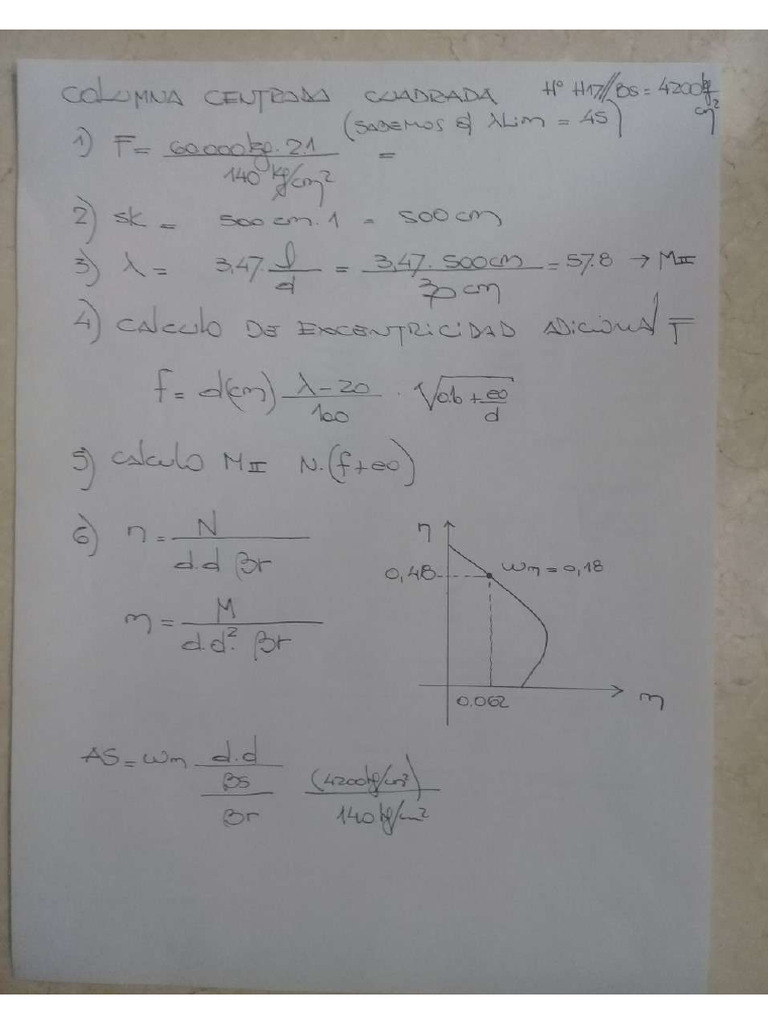 COLUMNA CENTRADA CUADRADA H° H17//βS = 4200 kg/cm²
(SABEMOS q/ λLim = 45)
1) F = 60.000kg.2.1 / 140 kg/cm² =
2) sk = 500 cm . 1 = 500 cm
3) λ = 3,47 . l/d = 3,47 . 500cm / 30 cm = 57.8 → MII
4) CALCULO DE EXCENTRICIDAD ADICIONAL F
f = d(cm) λ-20/100 . √0.6 + eo/d
5) CALCULO MII N.(f+eo)
6) n = N / d.d βr
m = M / d.d². βr
n
0,48 wm = 0,18
0.062 m
AS = wm d.d / βs/βr (4200kg/cm²) / 140 kg/cm²